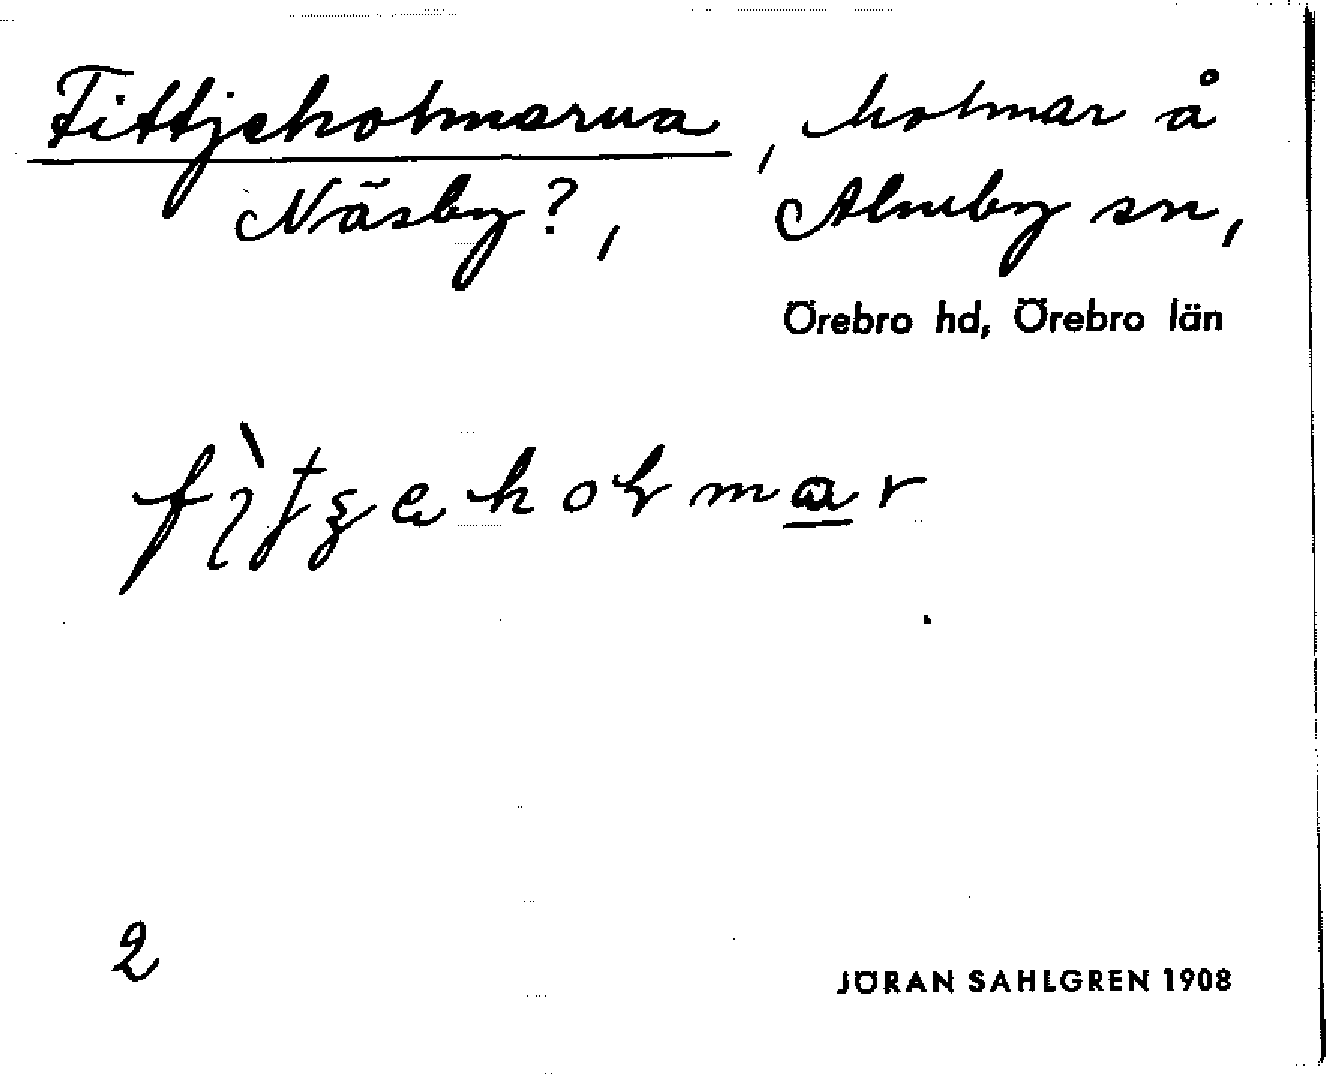 Fittjeholmarna, holmar å
Näsby?, Almby sn,
Örebro hd, Örebro län
2
JÖRAN SAHLGREN 1908